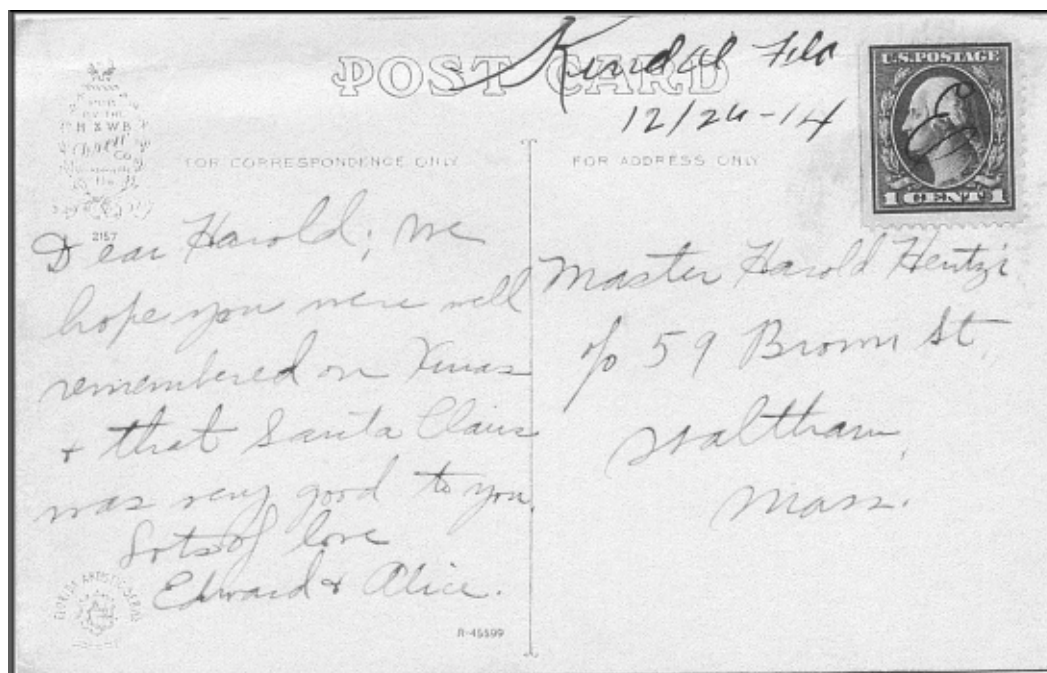 POST CARD
Kendal Fla
12/26-14
U.S. POSTAGE
1 CENT 1
FOR CORRESPONDENCE ONLY
FOR ADDRESS ONLY
H & W B
Co
2157
Dear Harold; we
hope you were well
remembered on Xmas
& that Santa Claus
was very good to you.
Lots of love
Edward & Alice.
Master Harold Hentzi
59 Brown St.
Waltham,
Mass.
FLORIDA ARTISTIC SERIES
R-45599